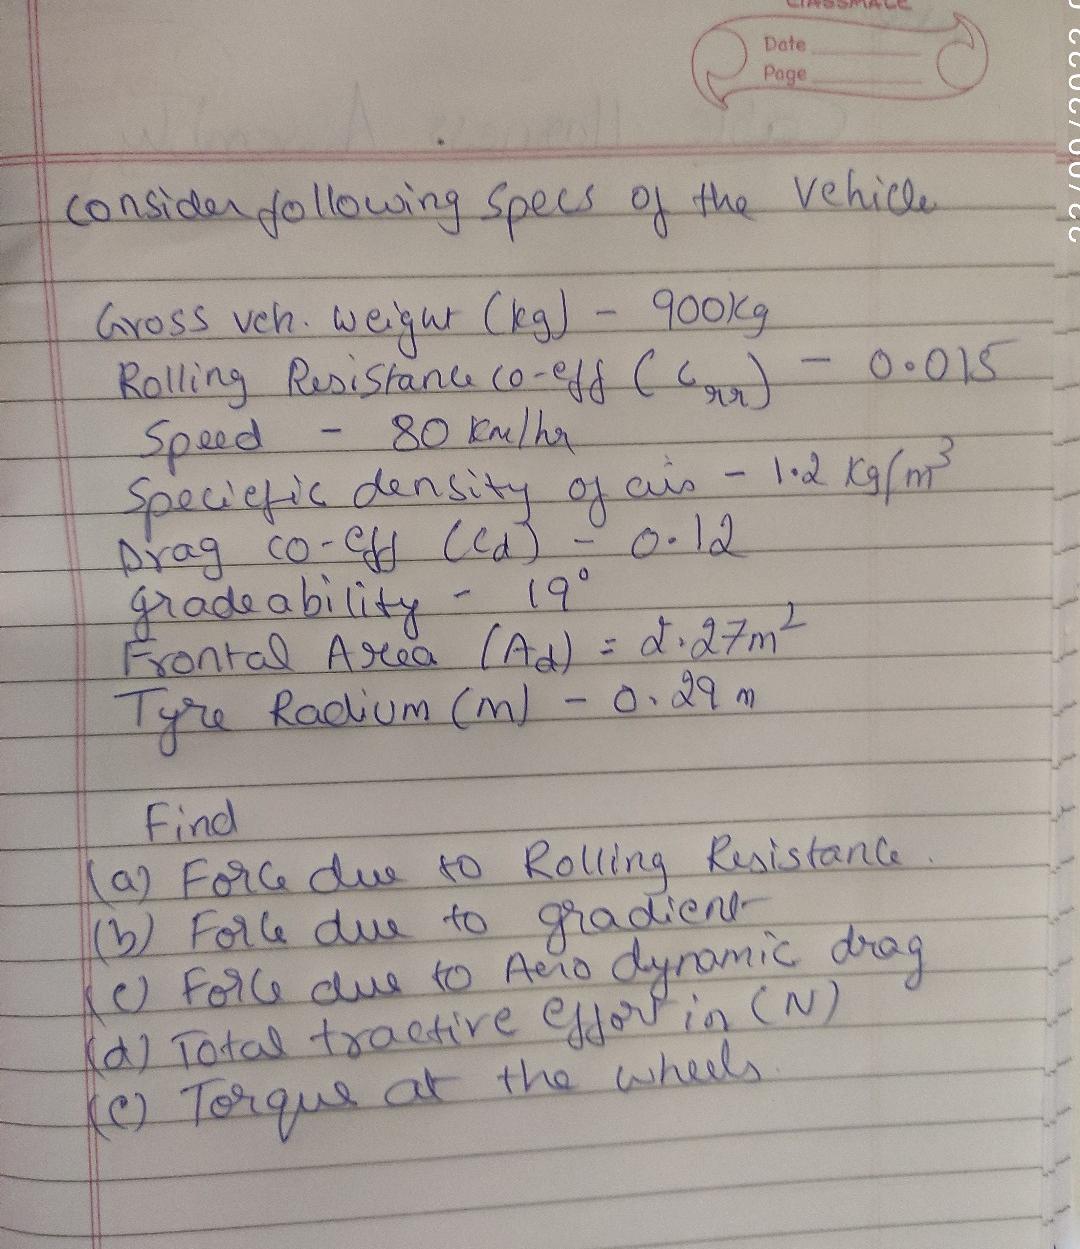 CLASSMATE
Date
Page
consider following specs of the vehicle
Gross veh. weight (kg) - 900kg
Rolling Resistance co-eff (Crr) - 0.015
Speed - 80 km/hr
Speciefic density of air - 1.2 kg/m³
Drag co-eff (Cd) - 0.12
gradeability - 19°
Frontal Area (Ad) = 2.27m²
Tyre Radium (m) - 0.29 m
Find
(a) Force due to Rolling Resistance.
(b) Force due to gradient
(c) Force due to Aero dynamic drag
(d) Total tractive effort in (N)
(e) Torque at the wheels.